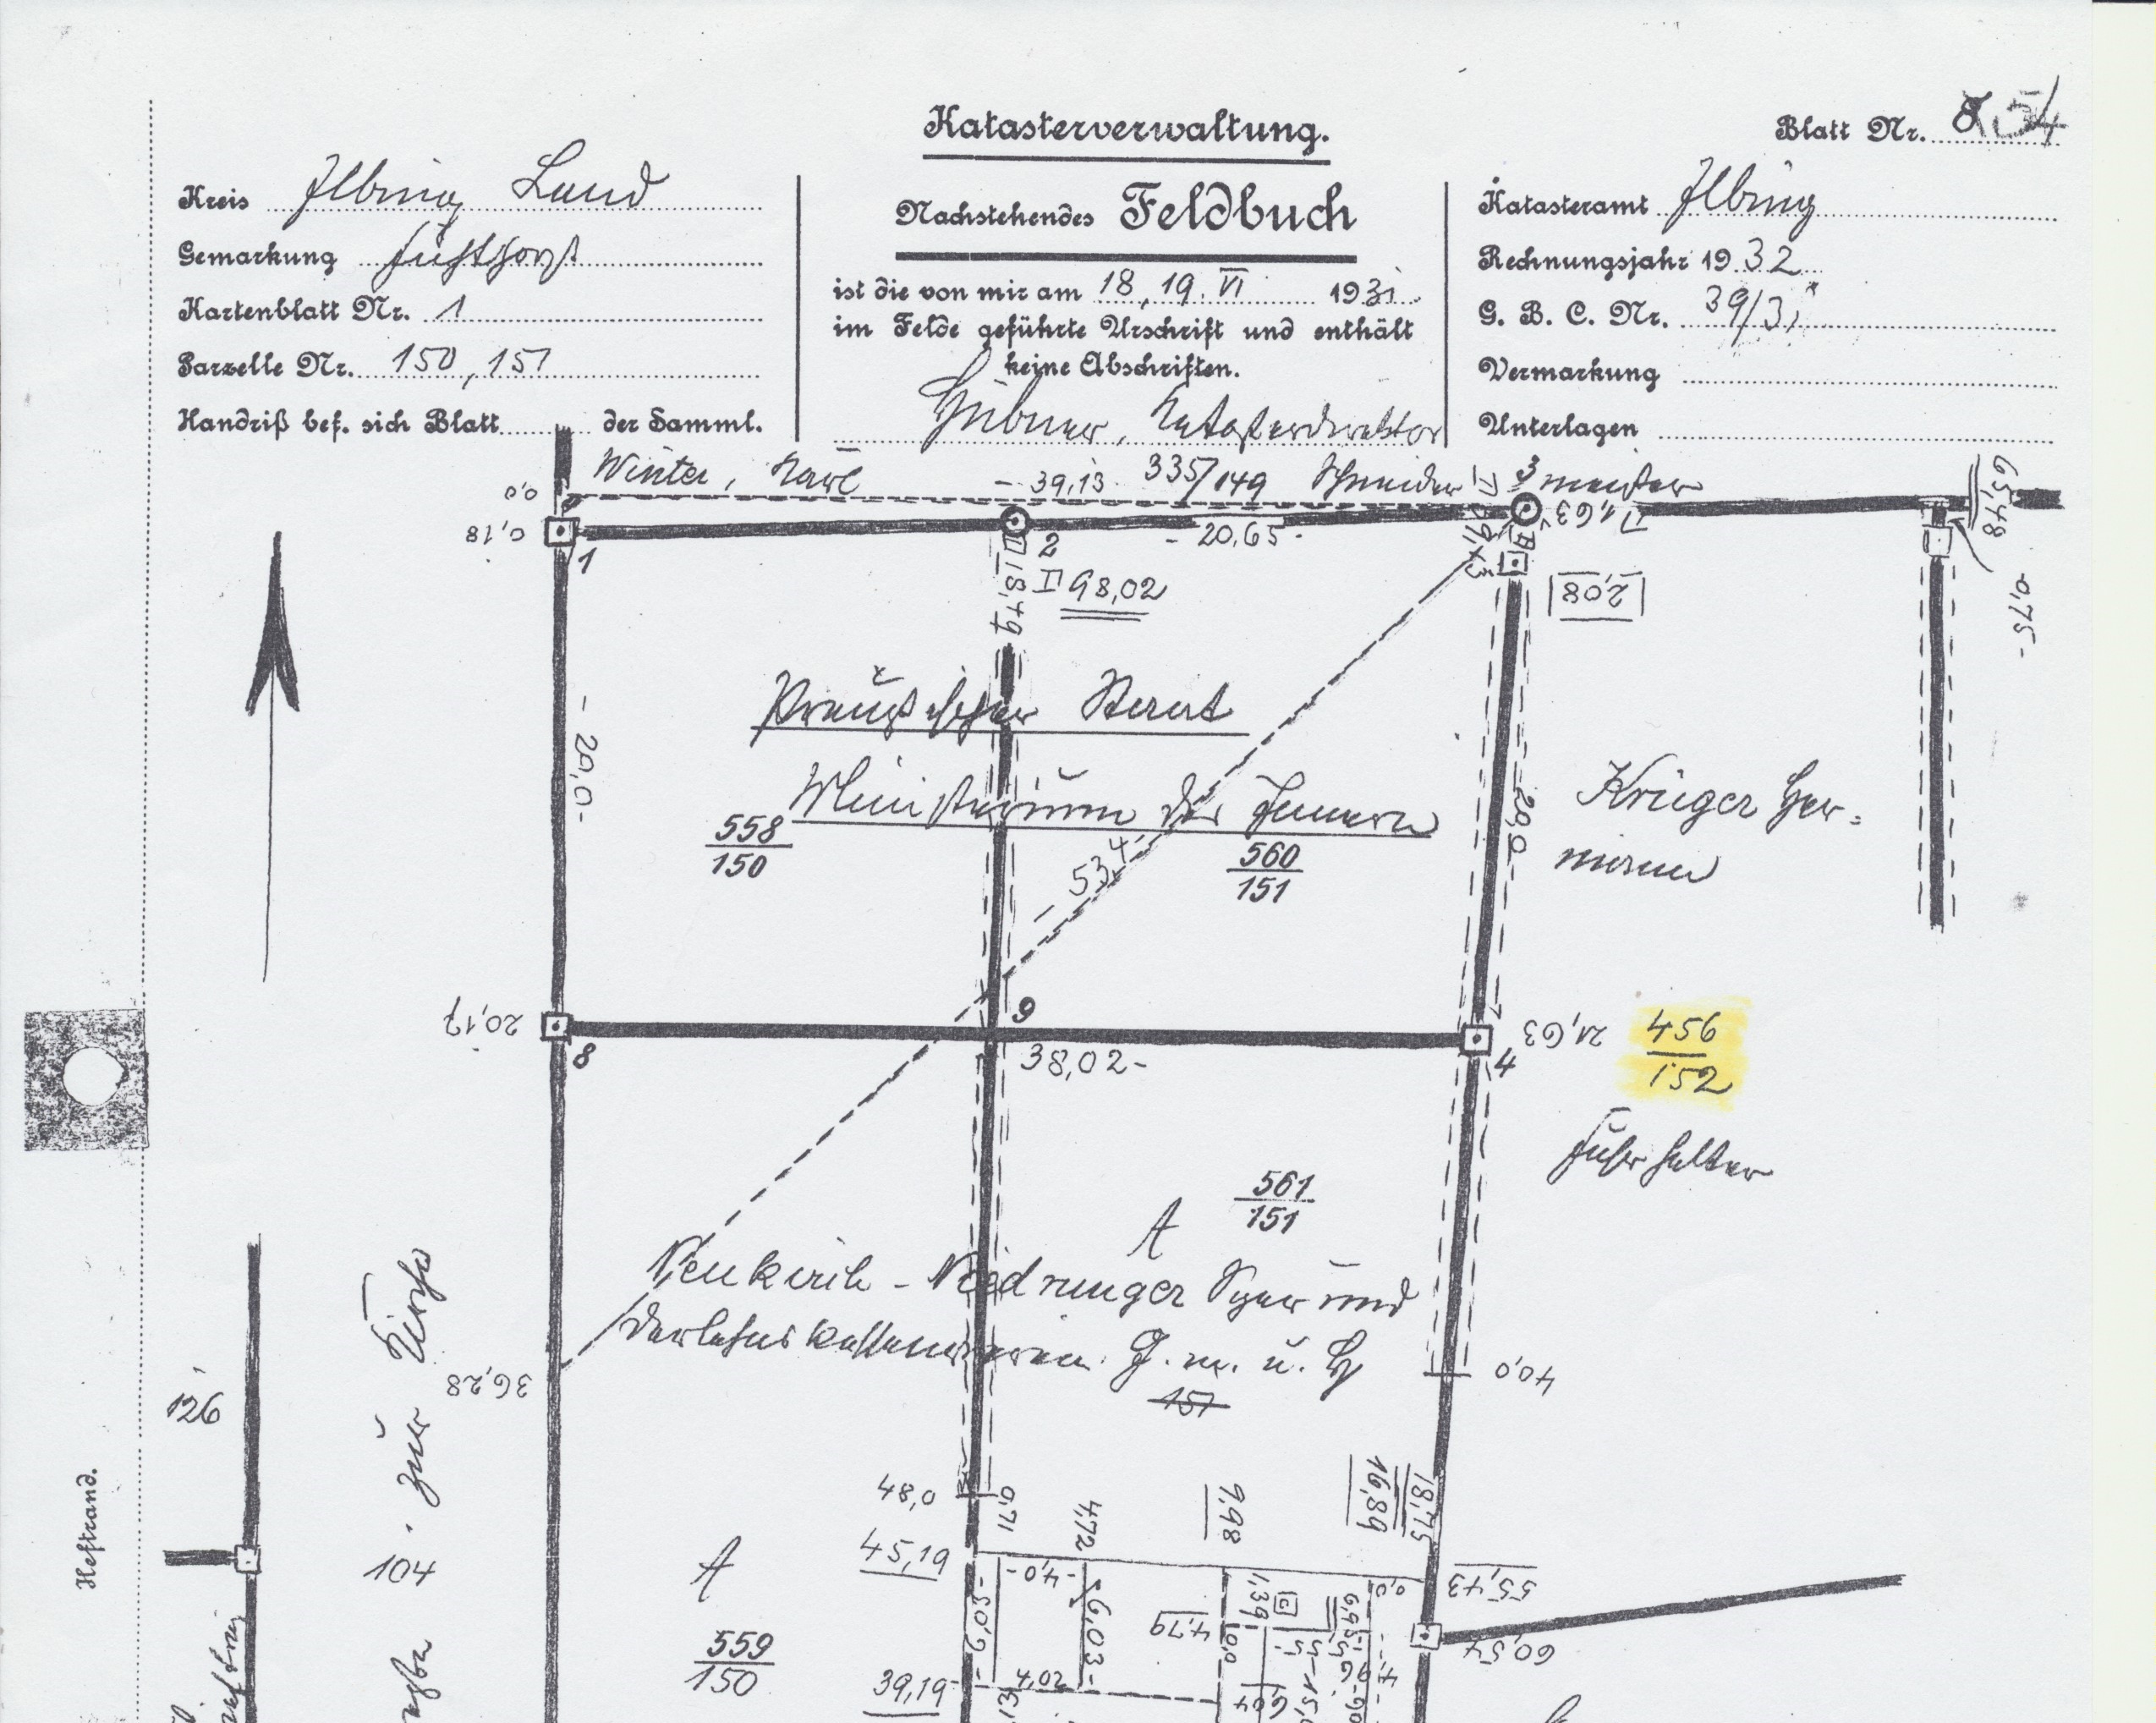 Katasterverwaltung.
Blatt Nr. 54
Kreis Elbing Land
Gemarkung
Kartenblatt Nr. 1
Parzelle Nr. 150, 151
Handriß bef. sich Blatt der Samml.
Nachstehendes Feldbuch
ist die von mir am 18, 19. VI 1931
im Felde geführte Urschrift und enthält
keine Abschriften.
Hübner, Katasterdirektor
Katasteramt Elbing
Rechnungsjahr 1932
G. B. C. Nr. 39/31
Vermarkung
Unterlagen
Winter, Karl - 39,13 335/149 Schneidermeister
3
0,0
0,18
1
2
- 20,65 -
1,63
65,48
-0,75-
18,79
II 98,02
2,08
Preußischer Staat
- 20,0 -
Ministerium des Innern
558
150
560
151
- 53,4 -
- 20,0 -
Krüger Her=
mann
20,17
8
9
38,02-
4
21,63
456
152
Fuhrhalter
561
151
A
Neukirch - Niedrunger Spar und
Darlehnskassenverein G. m. u. H
151
36,28
40,0
126
104
zur Kirche
Heftrand.
48,0
0,71
4,72
9,98
16,89
18,75
45,19
A
-4,0-
0,0
55,43
-5,02-
6,03-
4,79
1,39
60,54
559
150
39,19
4,02